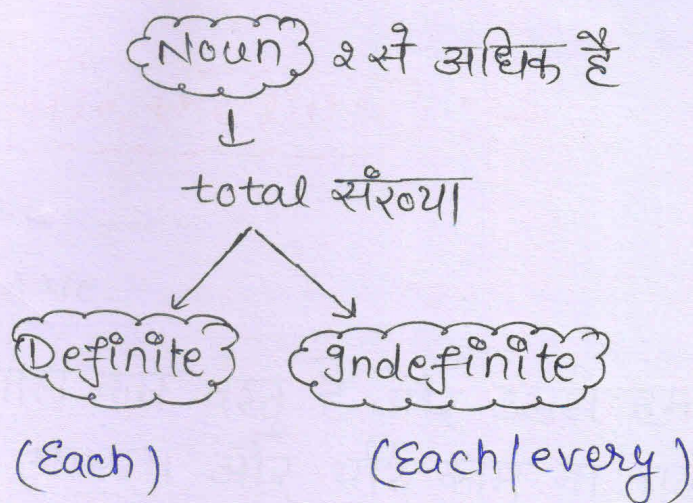 Noun २ से अधिक है
total संख्या
Definite Indefinite
(Each) (Each/every)